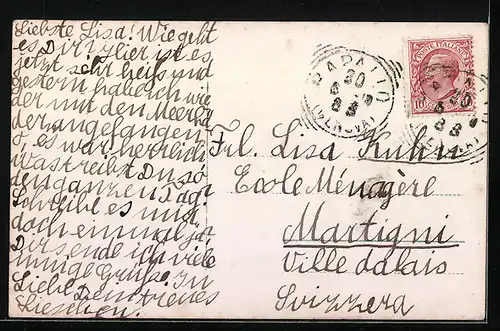 Liebste Lisa! Wie geht
es Dir? Hier ist es
jetzt sehr heiß und
gestern habe ich wie
der mit den Meerba
der angefangen
o, es war herrlich
was treibst Du so
den ganzen Tag?
Schreibe es mir
doch einmal ja.
Dir sende ich viele
innige Grüße. In
Liebe Dein treues
Lieschen.
POSTE ITALIANE
10
RAPALLO
30
(GENOVA)
Frl. Lisa Kuhn
Ecole Ménagère
Martigni
Ville dalais
Svizzera